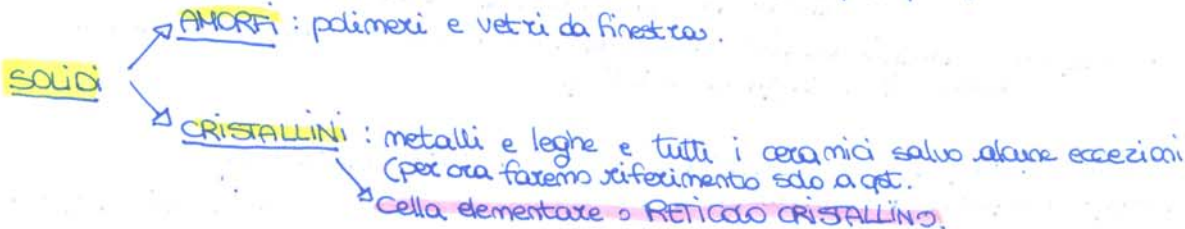 AMORFI : polimeri e vetri da finestra.
SOLIDI
CRISTALLINI : metalli e leghe e tutti i ceramici salvo alcune eccezioni
(per ora faremo riferimento solo a qst.
Cella elementare o RETICOLO CRISTALLINO.